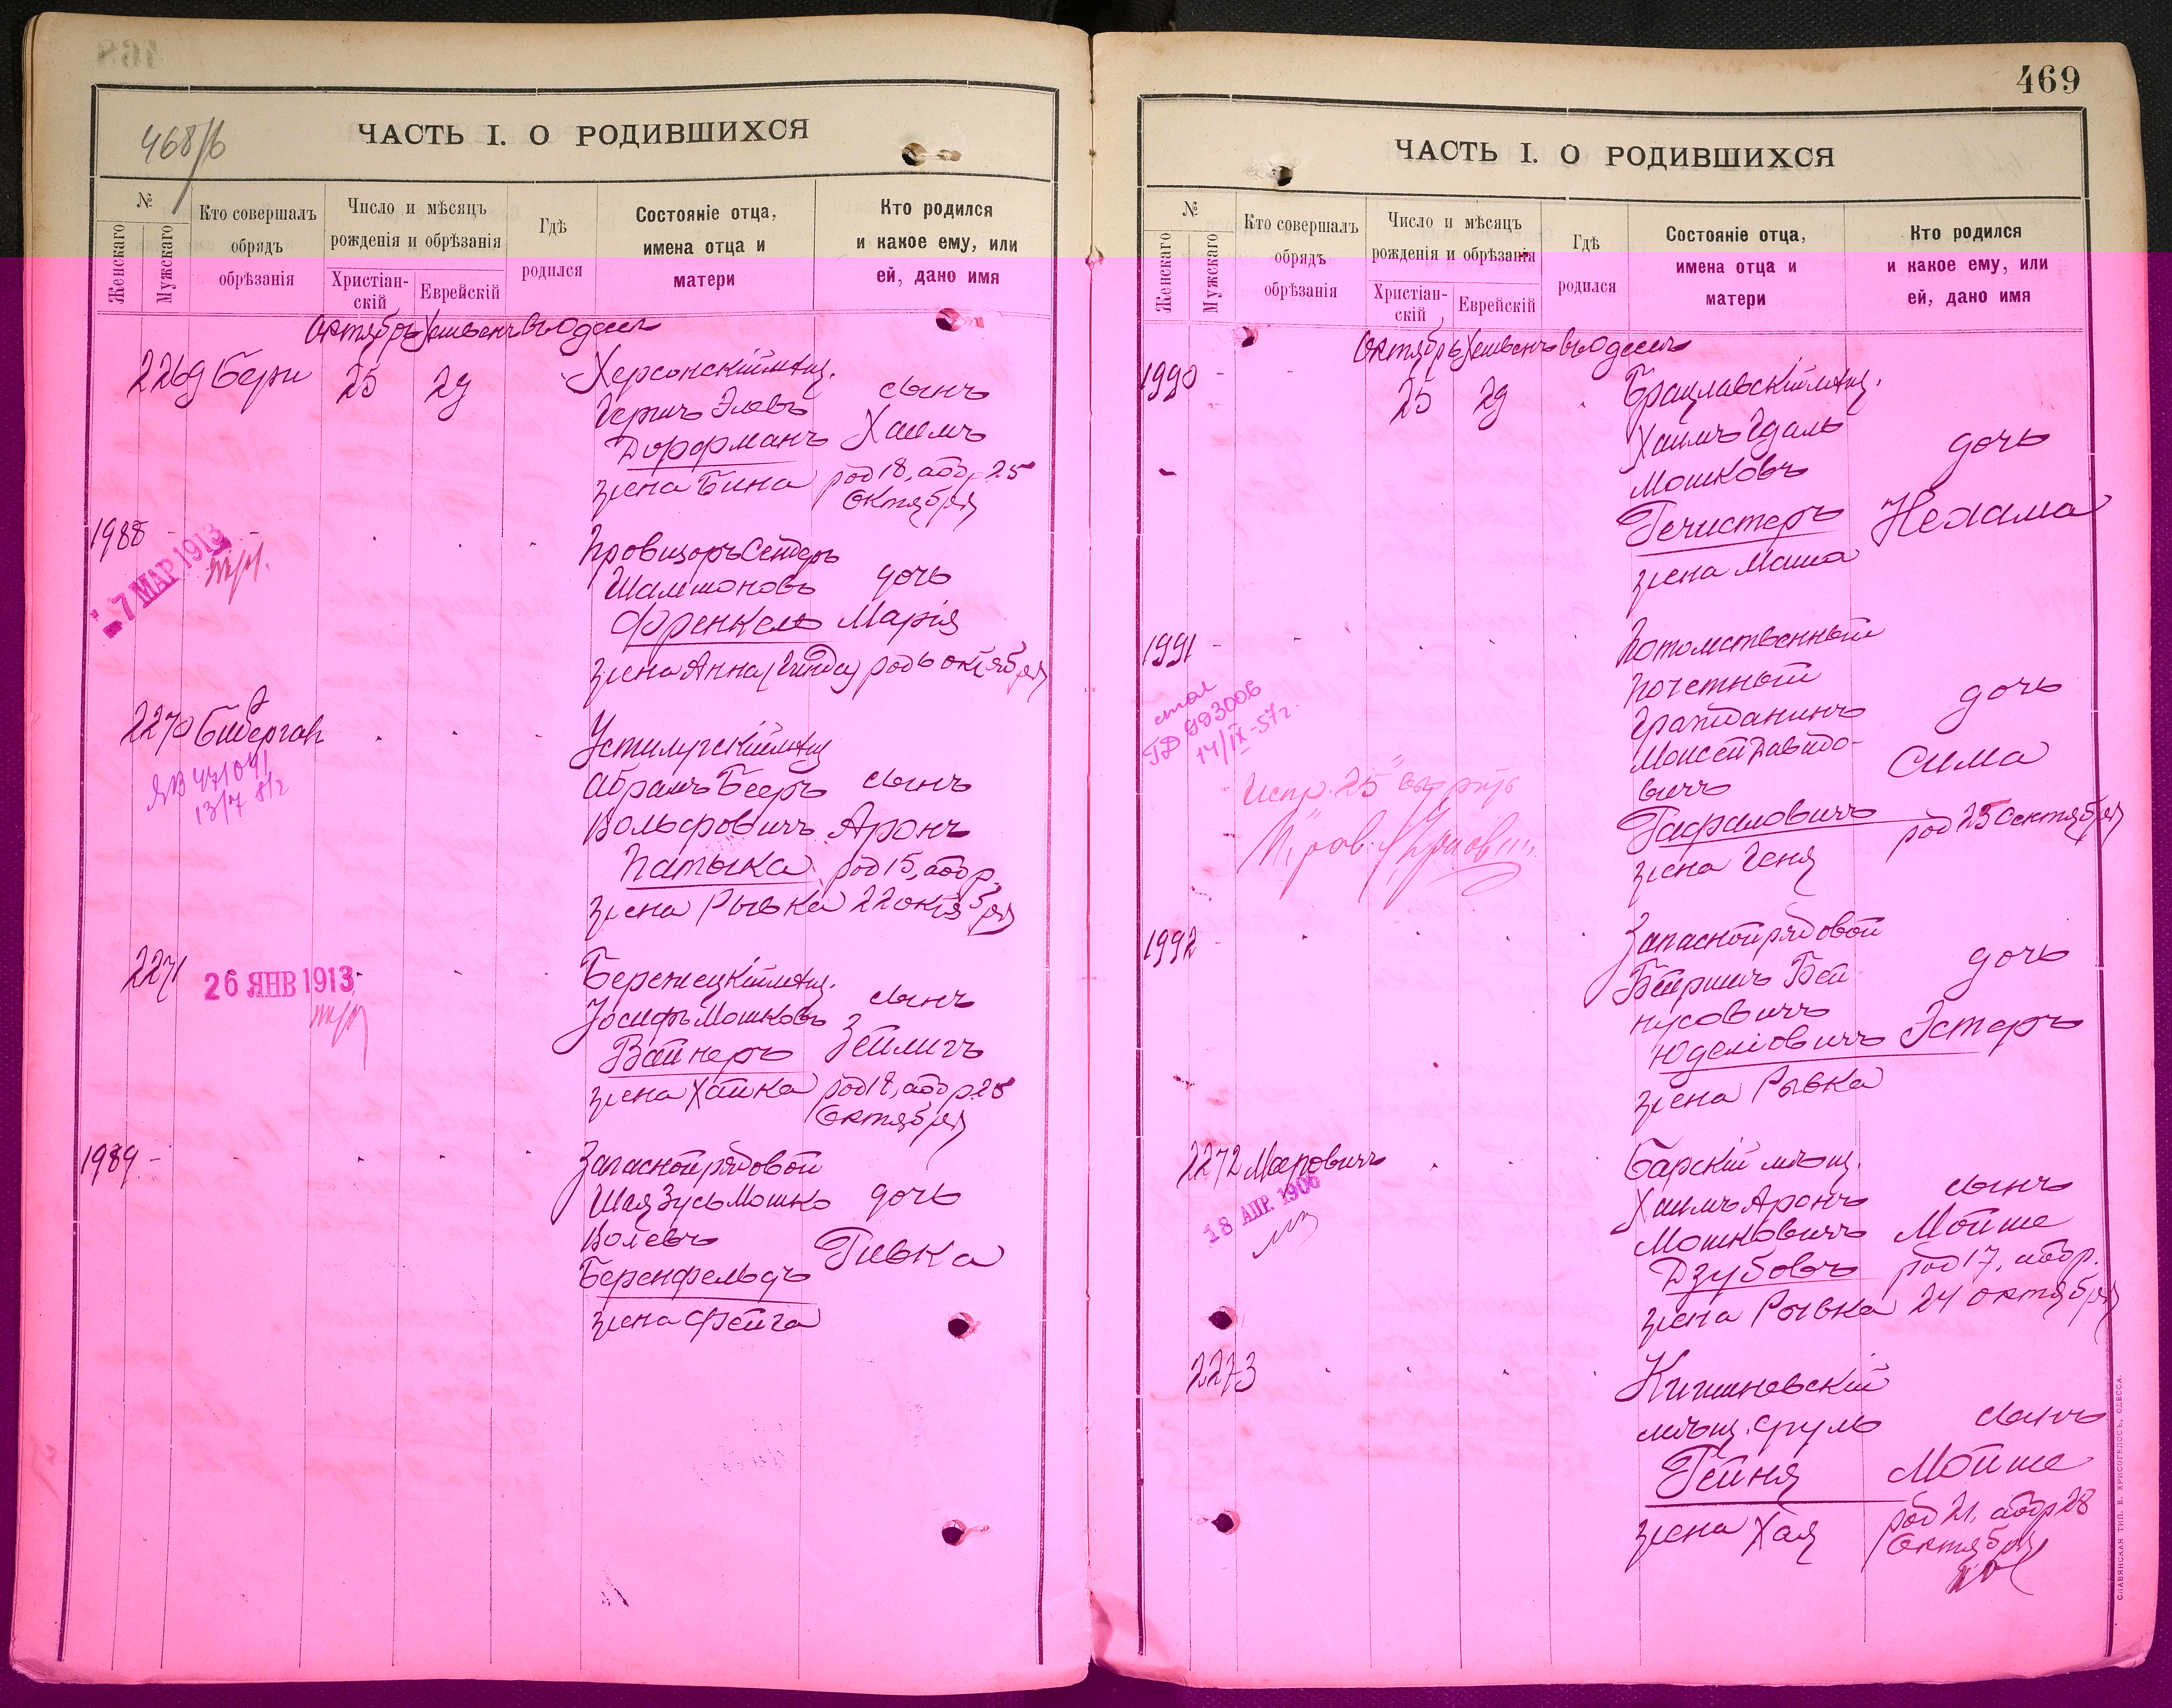 468/б
ЧАСТЬ I. О РОДИВШИХСЯ
№
Женскаго
Мужскаго
Кто совершалъ
обрядъ
обрѣзанія
Число и мѣсяцъ
рожденія и обрѣзанія
Христіан-
скій
Еврейскій
Гдѣ
родился
Состояніе отца,
имена отца и
матери
Кто родился
и какое ему, или
ей, дано имя
Октябрь Хешвенъ въ Одессѣ
2269 Бери 25 29
Херсонскій мѣщ.
Гершъ Элевъ
Дорфманъ
жена Бина
сынъ
Хаимъ
род 18, абр. 25
Октября
1988
- 7 МАР 1913
Провизоръ Сендеръ
Шлиомовъ
Френкель
жена Анна (Гинда)
дочь
Марія
род 6 октября
2270
ЯВ 471041
13/7
Устилугскій мѣщ
Абрамъ Бееръ
Вольфовичъ
Патыка
жена Рывка
сынъ
Аронъ
род 15, абр.
22 октября
2271
26 ЯНВ 1913
Бережецкій мѣщ.
Іосифъ Мошковъ
Вайнеръ
жена Хайка
сынъ
Зейлигъ
род 18, абр. 25
Октября
1989
Запасной рядовой
Шая Зусь Мошко
Волевъ
Беренфельдъ
жена Фейга
дочь
Ривка
469
ЧАСТЬ I. О РОДИВШИХСЯ
№
Женскаго
Мужскаго
Кто совершалъ
обрядъ
обрѣзанія
Число и мѣсяцъ
рожденія и обрѣзанія
Христіан-
скій
Еврейскій
Гдѣ
родился
Состояніе отца,
имена отца и
матери
Кто родился
и какое ему, или
ей, дано имя
Октябрь Хешвенъ въ Одессѣ
1990 25 29
Брацлавскій мѣщ.
Хаимъ Гдаль
Мошковъ
Гечистеръ
жена Маша
дочь
Нехама
1991
ГД 993006
14/IX-57г.
Испр. "25"
Потомственный
почетный
гражданинъ
Моисей Давидо-
вичъ
Рафаловичъ
жена Геня
дочь
Сима
род 25 Сентября
1992
Запасной рядовой
Бейришъ Бей-
нусовичъ
Юделіовичъ
жена Рывка
дочь
Эстеръ
2272 Мееровичъ
18 АПР. 1906
Барскій мѣщ.
Хаимъ Аронъ
Мошковичъ
Дзубовъ
жена Рывка
сынъ
Мойше
род 17, абр.
24 октября
2273
Кишиневскій
мѣщ. Сруль
Рейня
жена Хая
сынъ
Мойше
род 21, абр 28
Октября
СЛАВЯНСКАЯ ТИП. Е. ХРИСОГЕЛОСЪ, ОДЕССА.